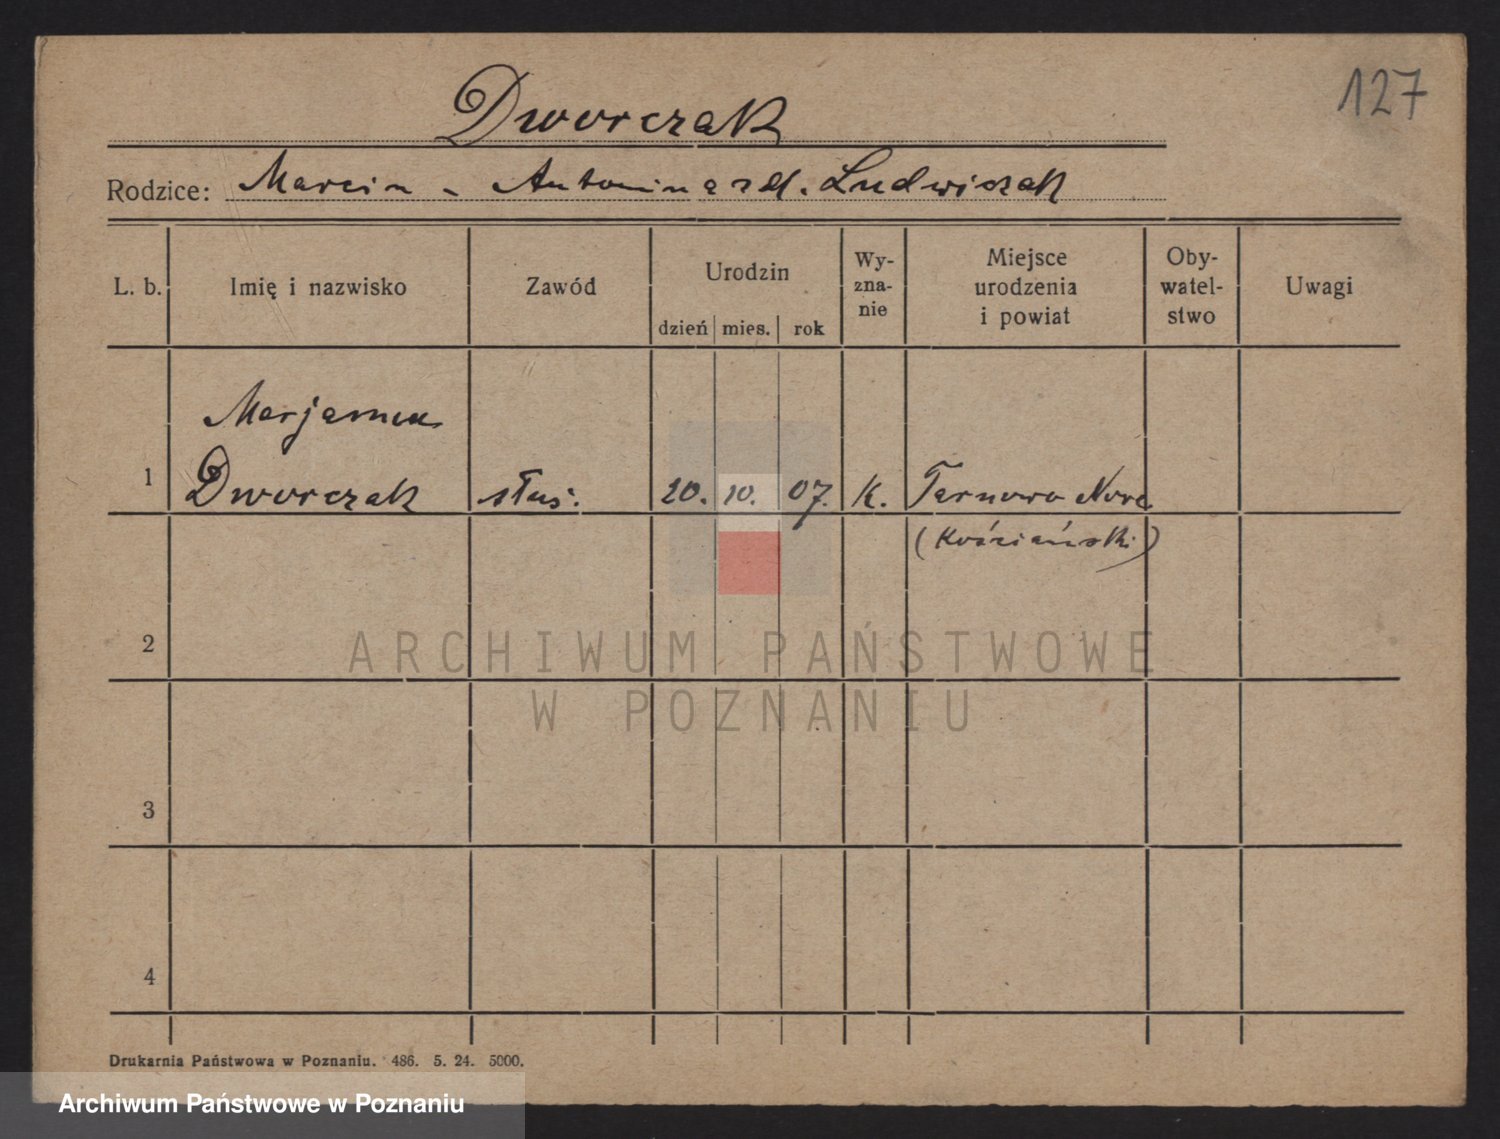 127
Dworczak
Rodzice: Marcin - Antonina zd. Ludwiczak
L. b. Imię i nazwisko Zawód Urodzin dzień mies. rok Wy-zna-nie Miejsce urodzenia i powiat Oby-watel-stwo Uwagi
Marjanna
1 Dworczak służ. 20. 10. 07. k. Tarnowo Nowe
(Kościański)
2
ARCHIWUM PAŃSTWOWE
W POZNANIU
3
4
Drukarnia Państwowa w Poznaniu. 486. 5. 24. 5000.
Archiwum Państwowe w Poznaniu